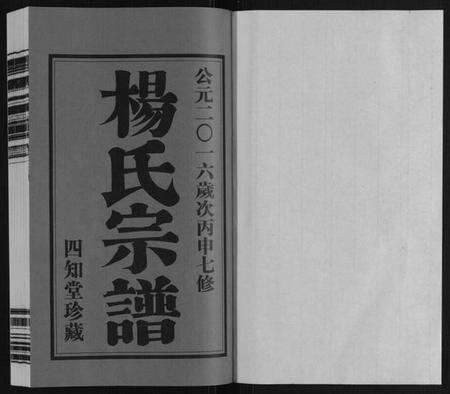 公元二〇一六歲次丙申七修
楊氏宗譜
四知堂珍藏